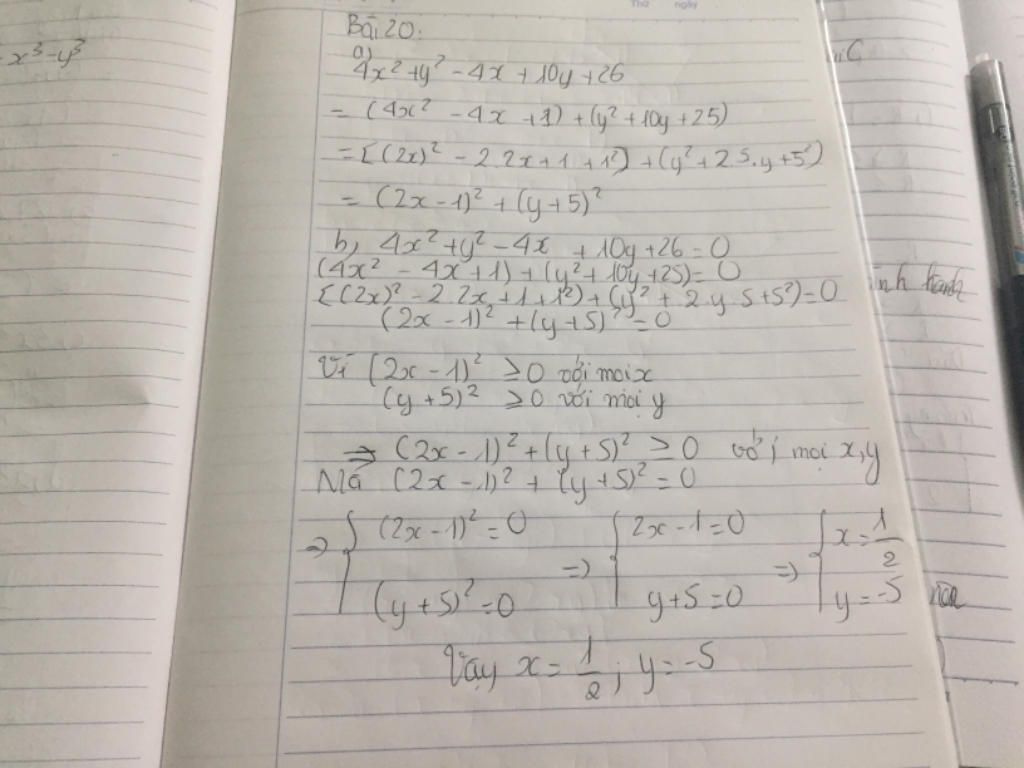 Thứ ngày
x³-y³
Bài 20:
a)
4x²+y² - 4x + 10y + 26
= (4x² - 4x + 1) + (y² + 10y + 25)
= [(2x)² - 2.2x+1 +1²] + (y² + 2.5.y + 5²)
= (2x - 1)² + (y + 5)²
b, 4x² + y² - 4x + 10y + 26 = 0
(4x² - 4x + 1) + (y² + 10y + 25) = 0
[(2x)² - 2.2x+1+1²) + (y² + 2.y.5 + 5²) = 0
(2x - 1)² + (y + 5)² = 0
Vì (2x - 1)² ≥ 0 với mọi x
(y + 5)² ≥ 0 với mọi y
=> (2x - 1)² + (y + 5)² ≥ 0 với mọi x, y
Mà (2x - 1)² + (y + 5)² = 0
=> { (2x - 1)² = 0 => { 2x - 1 = 0 => { x = 1/2
(y + 5)² = 0 y + 5 = 0 y = -5
Vậy x = 1/2 ; y = -5